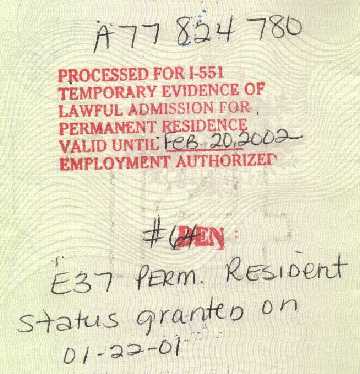 A77 824 780
PROCESSED FOR I-551
TEMPORARY EVIDENCE OF
LAWFUL ADMISSION FOR
PERMANENT RESIDENCE
VALID UNTIL Feb 20, 2002
EMPLOYMENT AUTHORIZED
#64 DEN
E37 PERM. RESIDENT
Status granted on
01-22-01